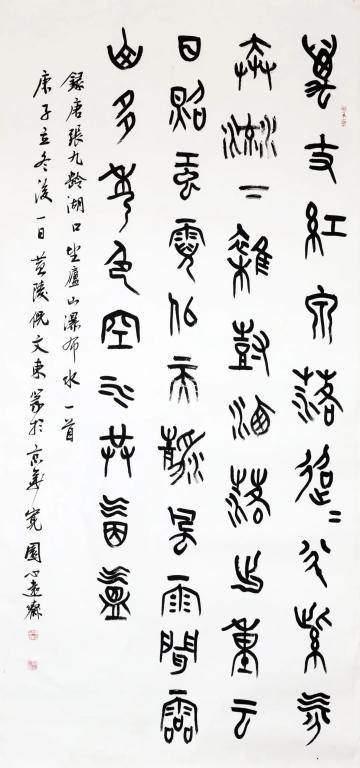 萬丈紅泉落迢〻半紫氛
奔流下雜樹灑落出重雲
日照虹霓似天清風雨聞靈
山多秀色空水共氤氳
錄唐張九齡湖口望廬山瀑布水一首
庚子立冬後一日黄陵倪文東篆於京華寬園心遠齋